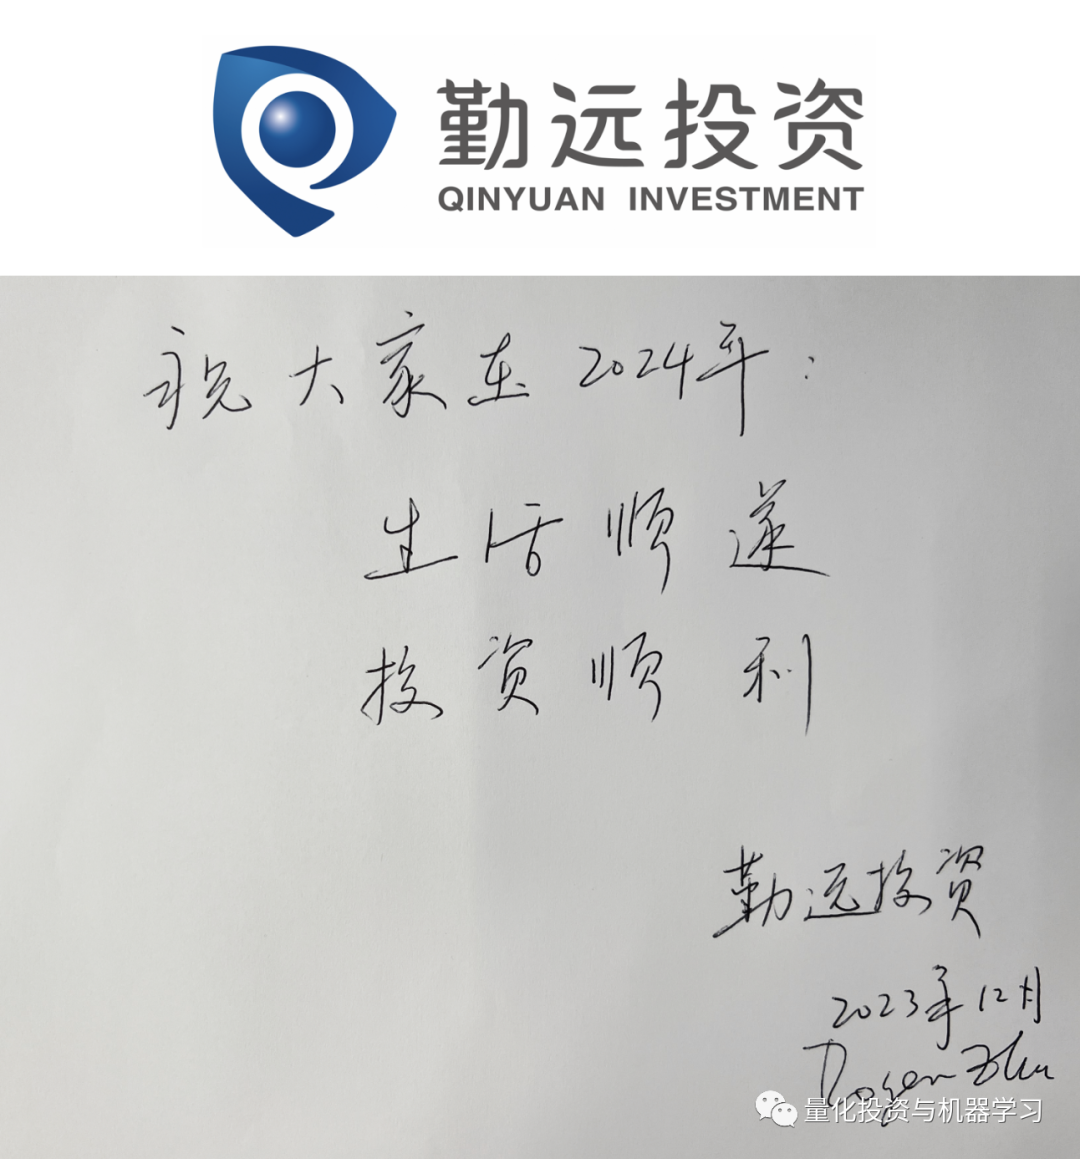 勤远投资
QINYUAN INVESTMENT
祝大家在2024年：
生活顺遂
投资顺利
勤远投资
2023年12月
量化投资与机器学习